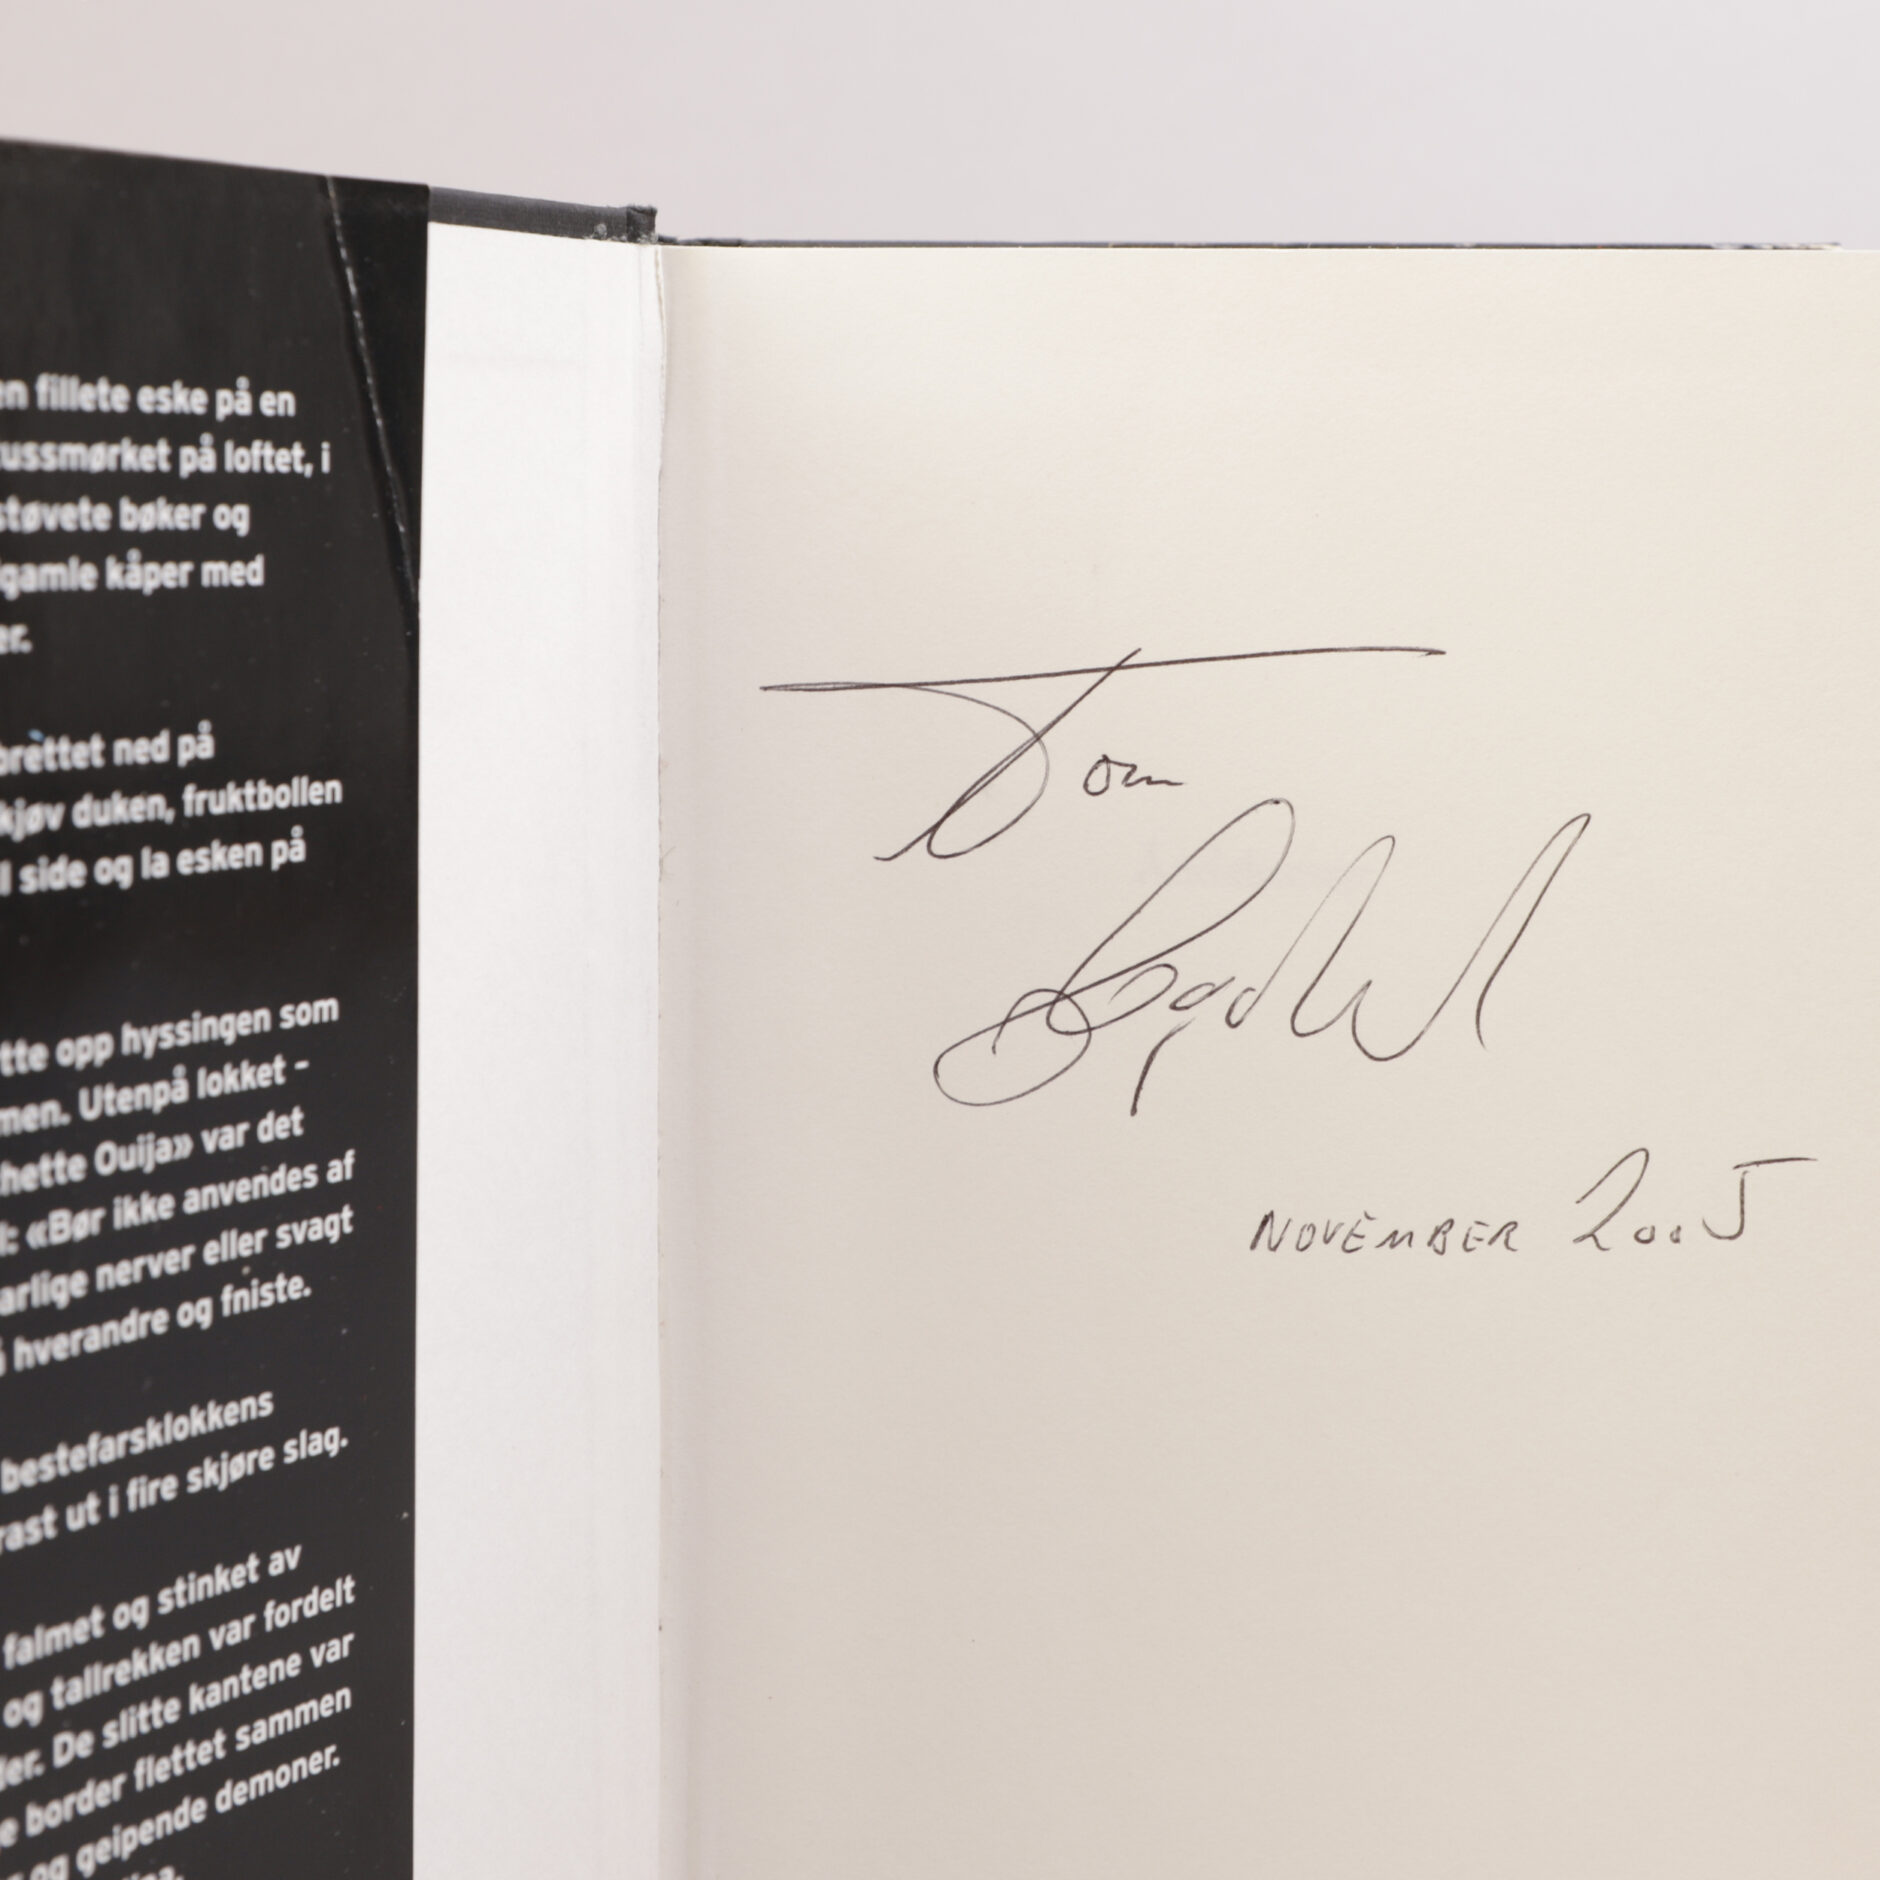 en fillete eske på en
tussmørket på loftet, i
støvete bøker og
gamle kåper med
er.
brettet ned på
kjøv duken, fruktbollen
l side og la esken på
tte opp hyssingen som
men. Utenpå lokket –
hette Ouija» var det
l: «Bør ikke anvendes af
arlige nerver eller svagt
hverandre og fniste.
bestefarsklokkens
rast ut i fire skjøre slag.
falmet og stinket av
og tallrekken var fordelt
der. De slitte kantene var
e border flettet sammen
og geipende demoner.
Tom
NOVEMBER 2005